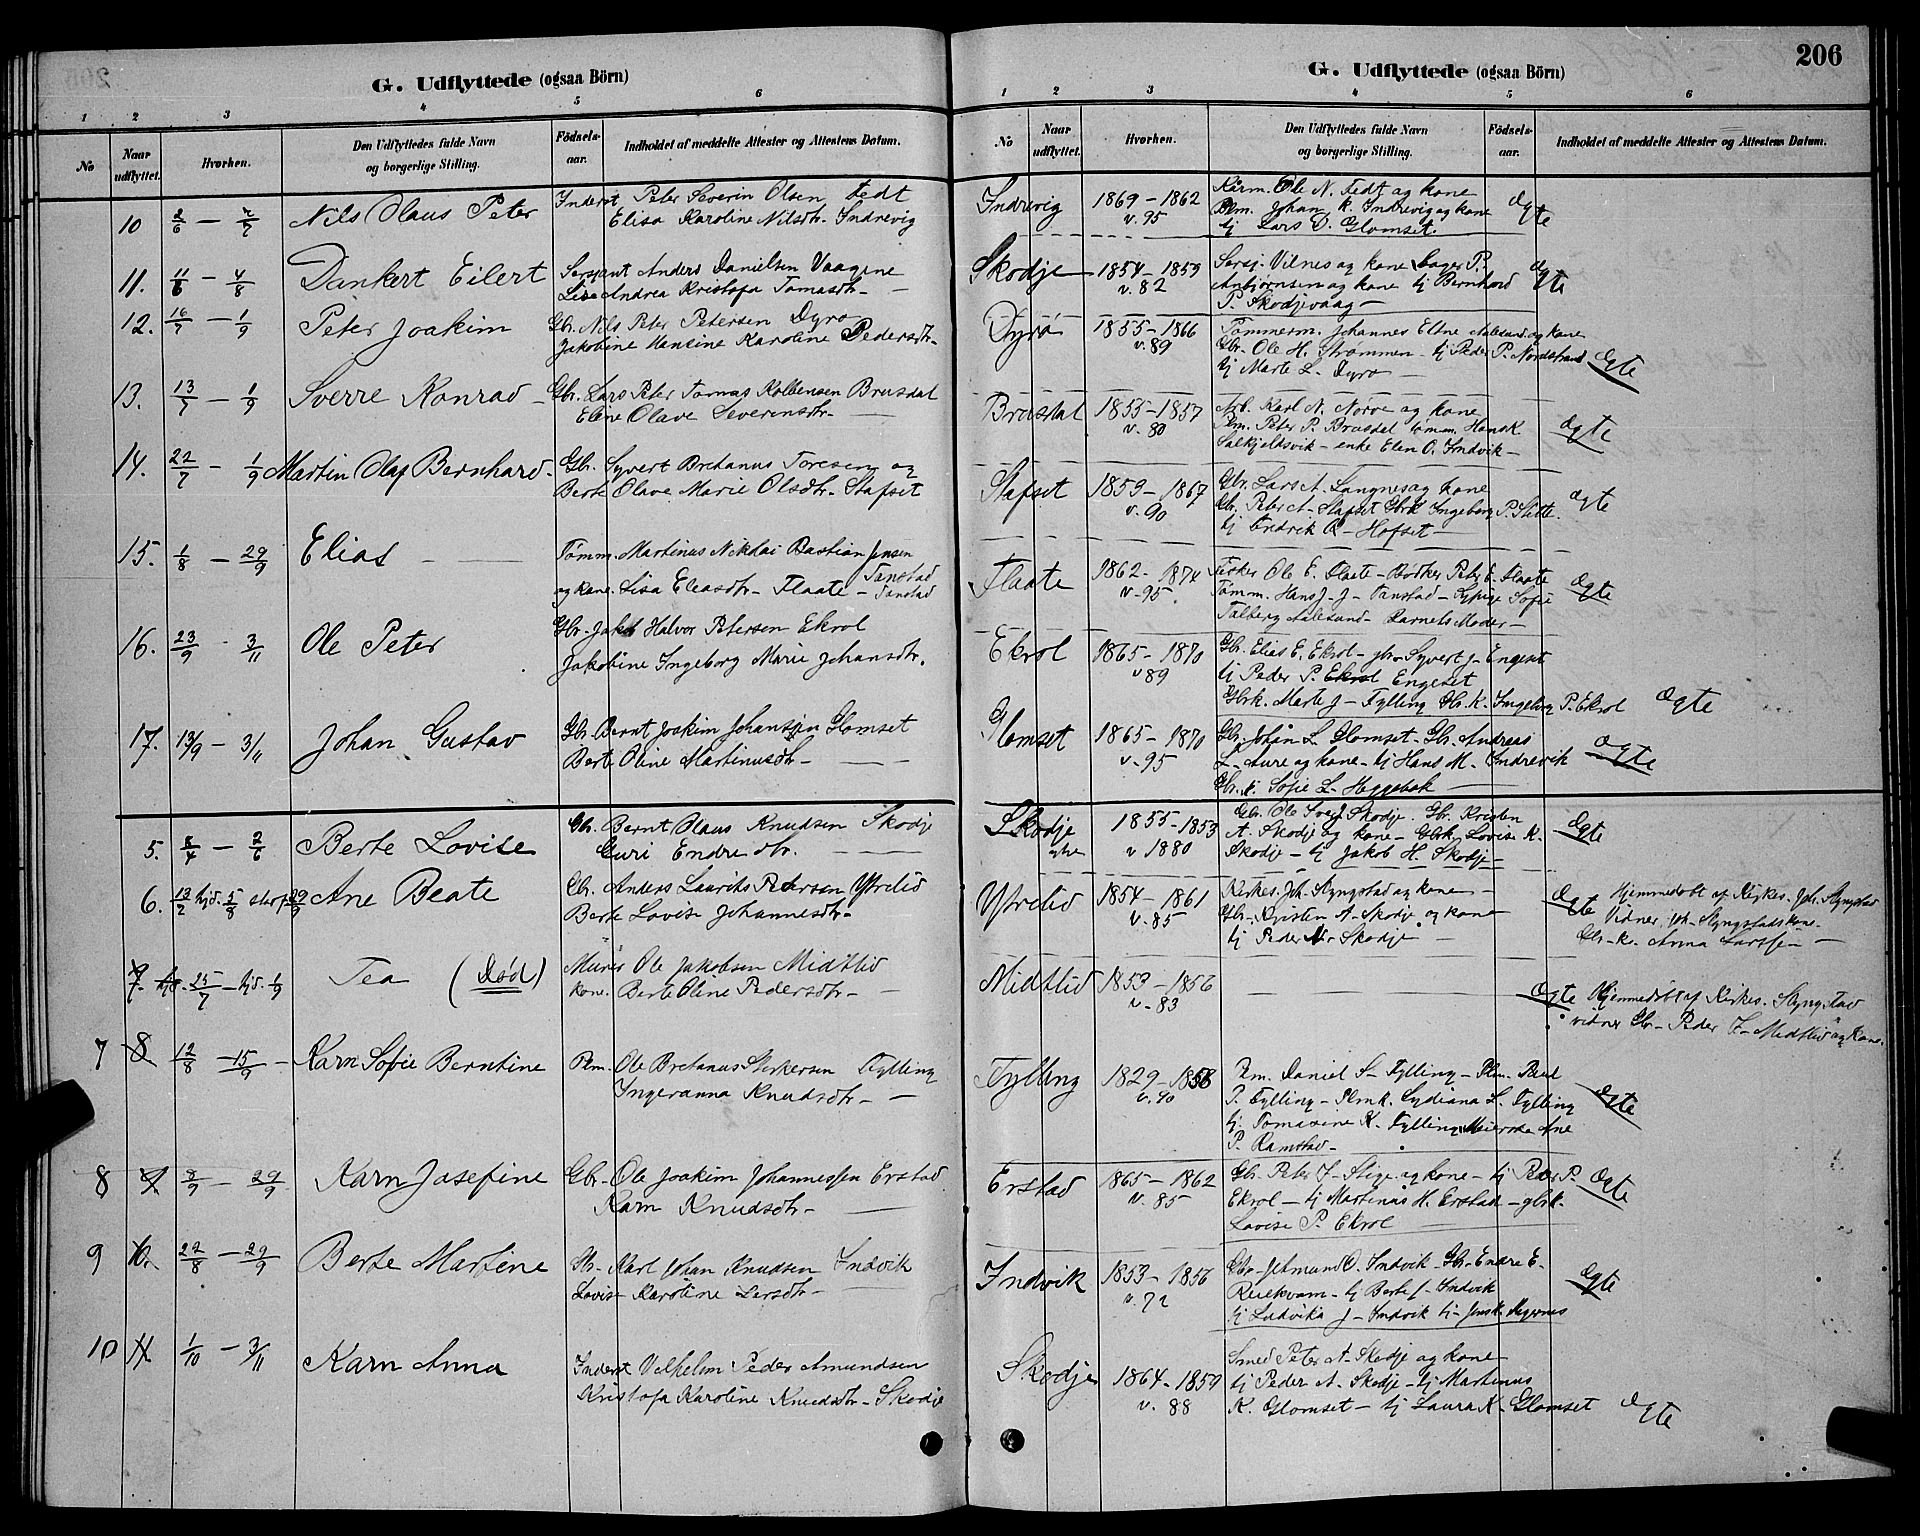 206
G. Udflyttede (ogsaa Börn)
1 2 3 4 5 6
No
Naar udflyttet.
Hvorhen.
Den Udflyttedes fulde Navn
og borgerlige Stilling.
Födsels-
aar.
Indholdet af meddelte Attester og Attestens Datum.
10 2/6 — Nils Olaus Peter
Inderst Peter Severin Olsen Fedt
Elisa Karoline Nilsdtr. Indrevig
11. 11/6 — 4/8 Dankert Eilert
Sersjant Anders Danielsen Vaagene
Andrea Kristofa Tomasdtr. —
12. 16/7 — 1/9 Peter Joakim
Gbr. Nils Peter Petersen Dyrø
Jakobine Hansine Karoline Pedersdtr.
13. 13/7 — 1/9 Sverre Konrad
Gbr. Lars Peter Tomas Kolbensen Brusdal
Elene Olave Severinsdtr. —
14. 22/7 — 1/9 Martin Olaf Bernhard
Gbr. Syvert Bretanus Toresen og
Berte Olave Marie Olsdtr. Stafset
15. 1/8 — 29/9 Elias
Tømm. Martinus Nikolai Bastian Jensen
Tanstad
og kone Lisa Eleasdtr. Flaate — Tanstad
16. 23/9 - 3/11 Ole Peter
Gbr. Jakob Halvor Petersen Ekrol
Jakobine Ingeborg Marie Johansdtr.
17. 13/9 — 3/11 Johan Gustav
Gbr. Bernt Joakim Johanssen Glomset
Berte Oline Martinusdtr. —
5. 8/4 — 2/6 Berte Lovise
Gbr. Bernt Olaus Knudsen Skodje
Guri Endresdtr. —
6. 13/2 hjd. 5/8 29/9 Ane Beate
Gbr. Anders Laurits Petersen Ytrelid
Berte Lovise Johannesdtr.
25/7 — hjd. 1/9 Tea (Død)
Murer Ole Jakobsen Midtlid
kone. Berte Oline Pedersdtr. —
7 8 12/8 — 15/9 Karn Sofie Berntine
Plm. Ole Bretanus Sterkersen Fylling
Ingeranna Knudsdtr. —
8 9 8/9 — 29/9 Karn Josefine
Gbr. Ole Joakim Johannessen Erstad
Karn Knudsdtr. —
9 10. 22/8 — 29/9 Berte Martine
Gbr. Karl Johan Knudsen Indvik
Lovise Karoline Larsdtr. —
10 11 1/10 — 3/11 Karn Anna
Inderst Vilhelm Peder Amundsen
Kristofa Karoline Knudsdtr. Skodje
G. Udflyttede (ogsaa Börn)
1 2 3 4 5 6
No
Naar
udflyttet.
Hvorhen.
Den Udflyttedes fulde Navn
og borgerlige Stilling.
Födsels-
aar.
Indholdet af meddelte Attester og Attestens Datum.
Indrevig 1869 — 1862
v. 95
Ole N. Fedt og kone
Plm. Johan K. Indrevig og kone
tj Lars O. Glomset.
Ægte
Skodje 1854 — 1859
v. 82
Sersj. Vilnes og kone Bager P.
Anbjørnsen og kone tj Bernhard
P. Skodjevaag —
Ægte
Dyrø 1855 — 1866
v. 89
Tømmerm. Johannes Eltne Aalesund og kone
Gbr. Ole H. Strømmen — tj Peder P. Nordstrand
tj Marte L. Dyrø —
Ægte
Brusdal 1855 — 1857
v. 80
Arb. Karl N. Nørve og kone
Plm. Peter P. Brusdal Hans K
Solkjeldsvik — enke Elen O. Indvik —
Ægte
Stafset 1859 — 1867
v. 90
Gbr. Lars A. Langnes og kone
Gbr. Peter A. Stafset Gbrk Ingeborg P. Slette
tj Endrik O. Hofset —
Ægte
Flaate 1862 — 1874
v. 95
Fisker Ole E. Flaate — Bødker Peter E. Flaate
Tømm. Hans J. J — Tanstad — Sypige Sofie
Talberg Aalesund — Barnets Moder —
Ægte
Ekrol 1865 — 1870
v 89
Gbr. Elias E. Ekrol — gbr. Syvert J. Engeset
tj Peder P. Ekrol Engeset
Gbrk. Marte J — Fylling Gbr. K. Ingeborg P. Ekrol Ægte
Glomset 1865 — 1870
v. 95
Gbr. Johan L Glomset — Gbr. Andreas
L. Aure og kone — tj Hans M. Indrevik
Gbr. k. Sofie L. Heggebak —
Ægte
Skodje 1855 — 1853
ytre v 1880
Gbr. Ole Skodje. Gbr. Kristen
A. Skodje og kone — Gbrk. Lovise K.
Skodje — tj Jakob H. Skodje —
Ægte
Ytrelid 1854 — 1861
v. 85
Kirkes. Joh. Slyngstad og kone —
Gbr. Kristen A. Skodje og kone
tj Peder Nr. Skodje —
Ægte Hjemmedøbt af Kirkes. Joh. Slyngstad
Vidner. Joh. Slyngstads kone —
Gbr. k. Anna Larssen —
Midtlid 1853 — 1856
v. 83
Ægte Hjemmedøbt af Kirkes. Slyngstad
vidner Gbr. Peder J. Midtlid og Kone.
Fylling 1829 — 1858
v. 90
Plm. Daniel S. Fylling — Plm. Paul
P. Fylling — Plmk. Lydiana L. Fylling
tj. Tomasine K. Fylling Meierske Ane
P. Ramstad —
Ægte
Erstad 1865 — 1862
v. 85
Gbr. Peter J. Stige og kone — tj Peder P.
Ekrol — tj Martinus H. Erstad — gbrk.
Lovise P. Ekrol
Ægte
Indvik 1853 — 1856
v. 72
Gbr. Jetmund O. Indvik — Gbr. Endre E.
Reiekvam — tj Berte J. Indvik
tj Ludvika J — Indvik tj
Ægte
Skodje 1864 — 1859
v. 88
Smed Peter A. Skodje og kone
tj Peder A. Skodje — tj Martinus
K. Glomset — tj Laura K. Glomset Ægte